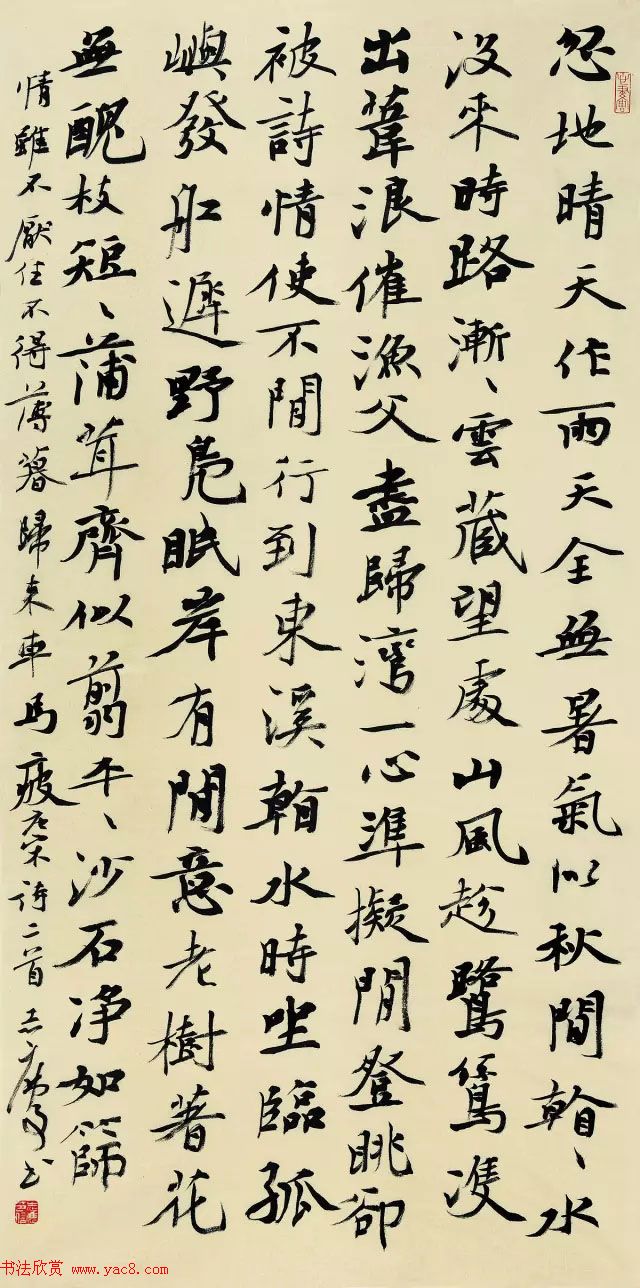 忽地晴天作雨天全無暑氣似秋間看、水
没來時路漸、雲藏望處山風趁鷺鷥雙
出葦浪催漁父盡歸灣一心準擬閒登眺卻
被詩情使不閒行到東溪看水時坐臨孤
嶼發船遲野凫眠岸有閒意老樹著花
無醜枝短、蒲茸齊似翦平、沙石净如篩
情雖不厭住不得薄暮歸來車馬疲 宋詩二首 書
书法欣赏 www.yac8.com